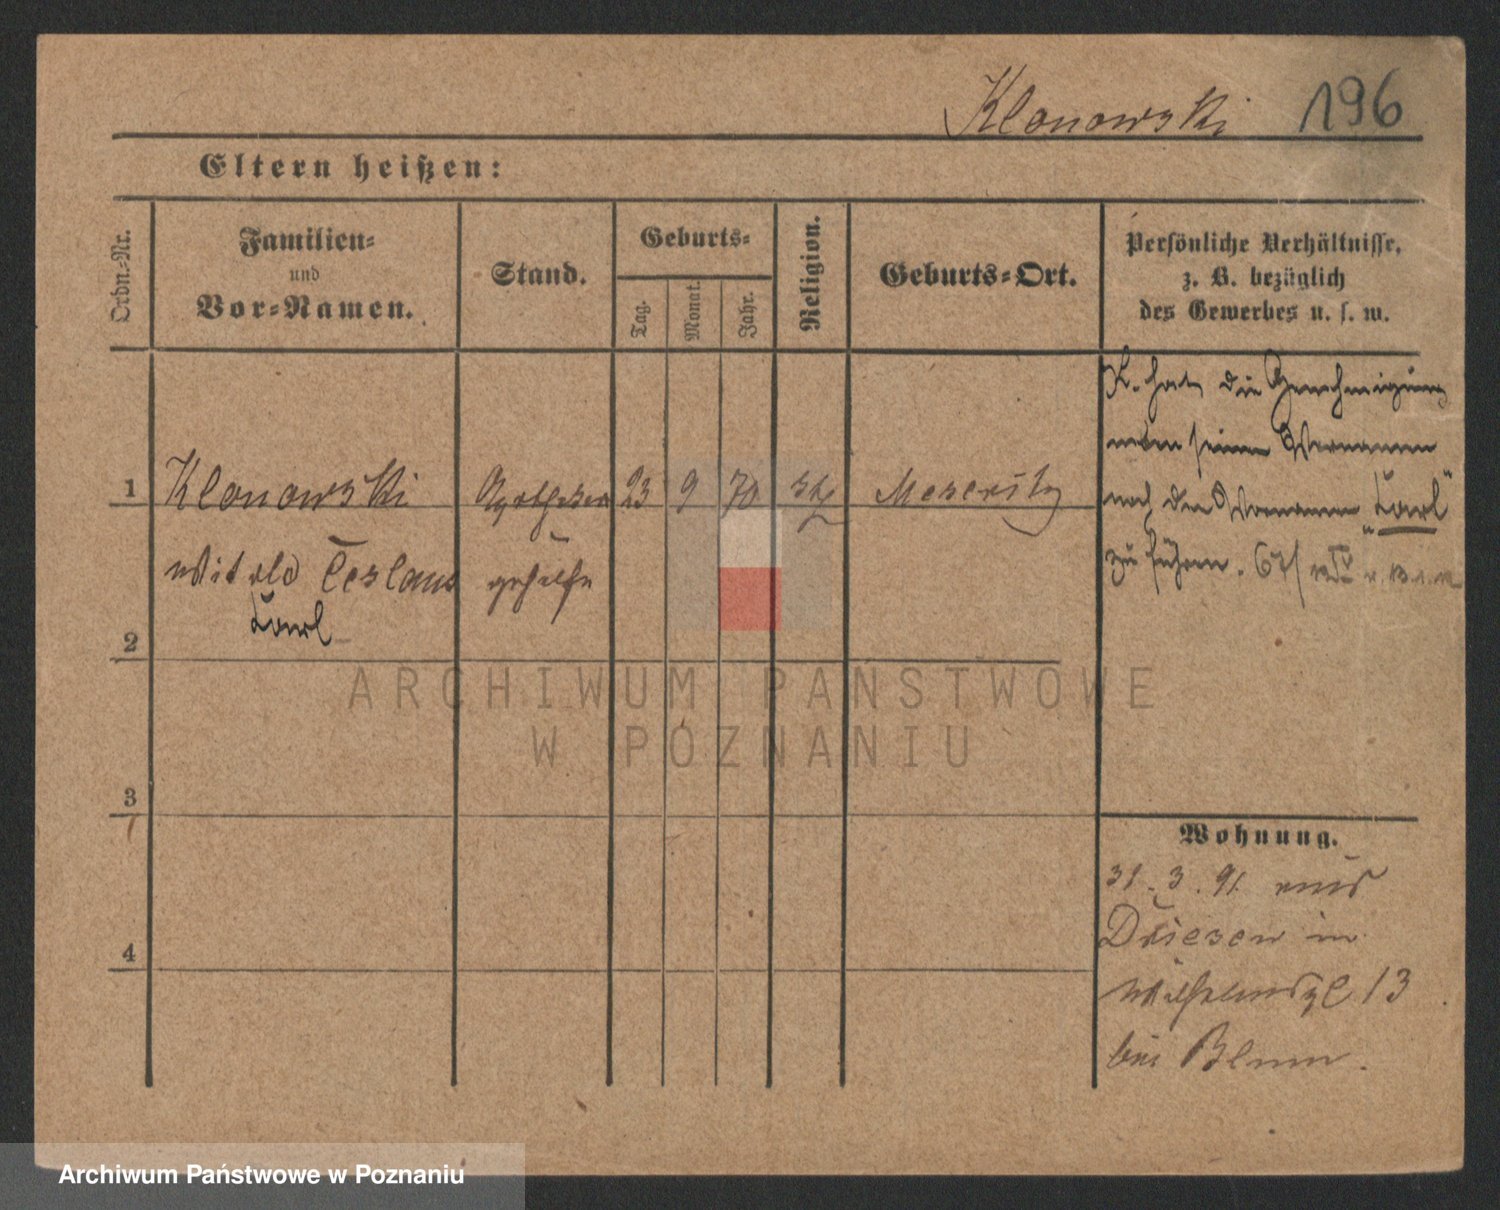 Klonowski 196
Eltern heißen:
Ordn.-Nr.
Familien-
und
Vor-Namen.
Stand.
Geburts-
Tag.
Monat.
Jahr.
Religion.
Geburts-Ort.
Persönliche Verhältnisse,
z. B. bezüglich
des Gewerbes u. s. w.
1 Klonowski Apotheker 23 9 70 kth Meseritz
Witold Ceslaus gehilfe
Karl
2
3
4
K. hat die Genehmigung
neben seinen Vornamen
noch den Vornamen „Karl"
zu führen. 67/
Wohnung.
31. 3. 91. aus
Driesen in
Wilhelmspl 13
bei Blum.
ARCHIWUM PAŃSTWOWE
W POZNANIU
Archiwum Państwowe w Poznaniu